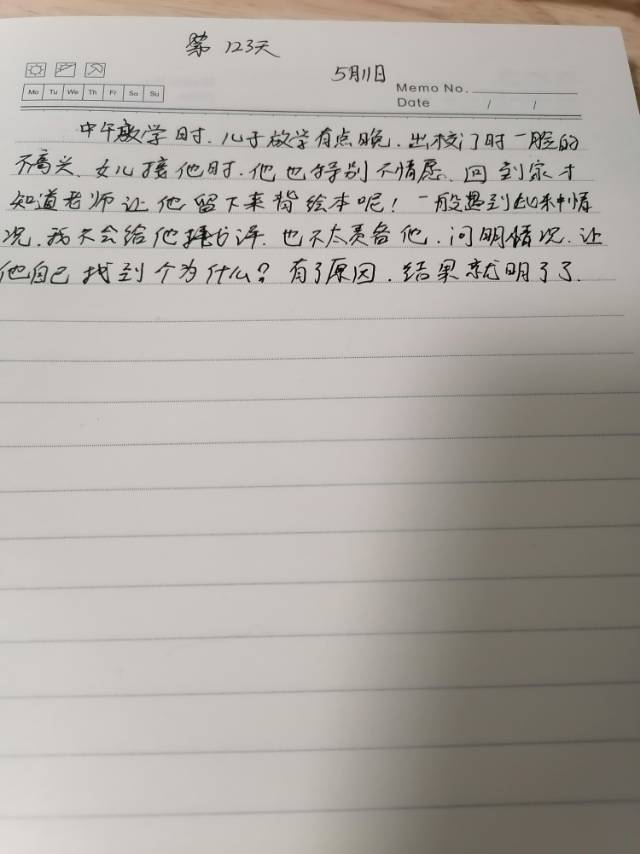 第 123天
5月11日
Memo No.
Mo Tu We Th Fr Sa Su
Date / /
中午放学时.儿子放学有点晚.出校门时一脸的
不高兴.女儿接他时.他也特别不情愿.回到家才
知道老师让他留下来背绘本呢！一般遇到此种情
况.我不会给他评.也不太责备他.问明情况.让
他自己找到个为什么？有了原因.结果就明了了.